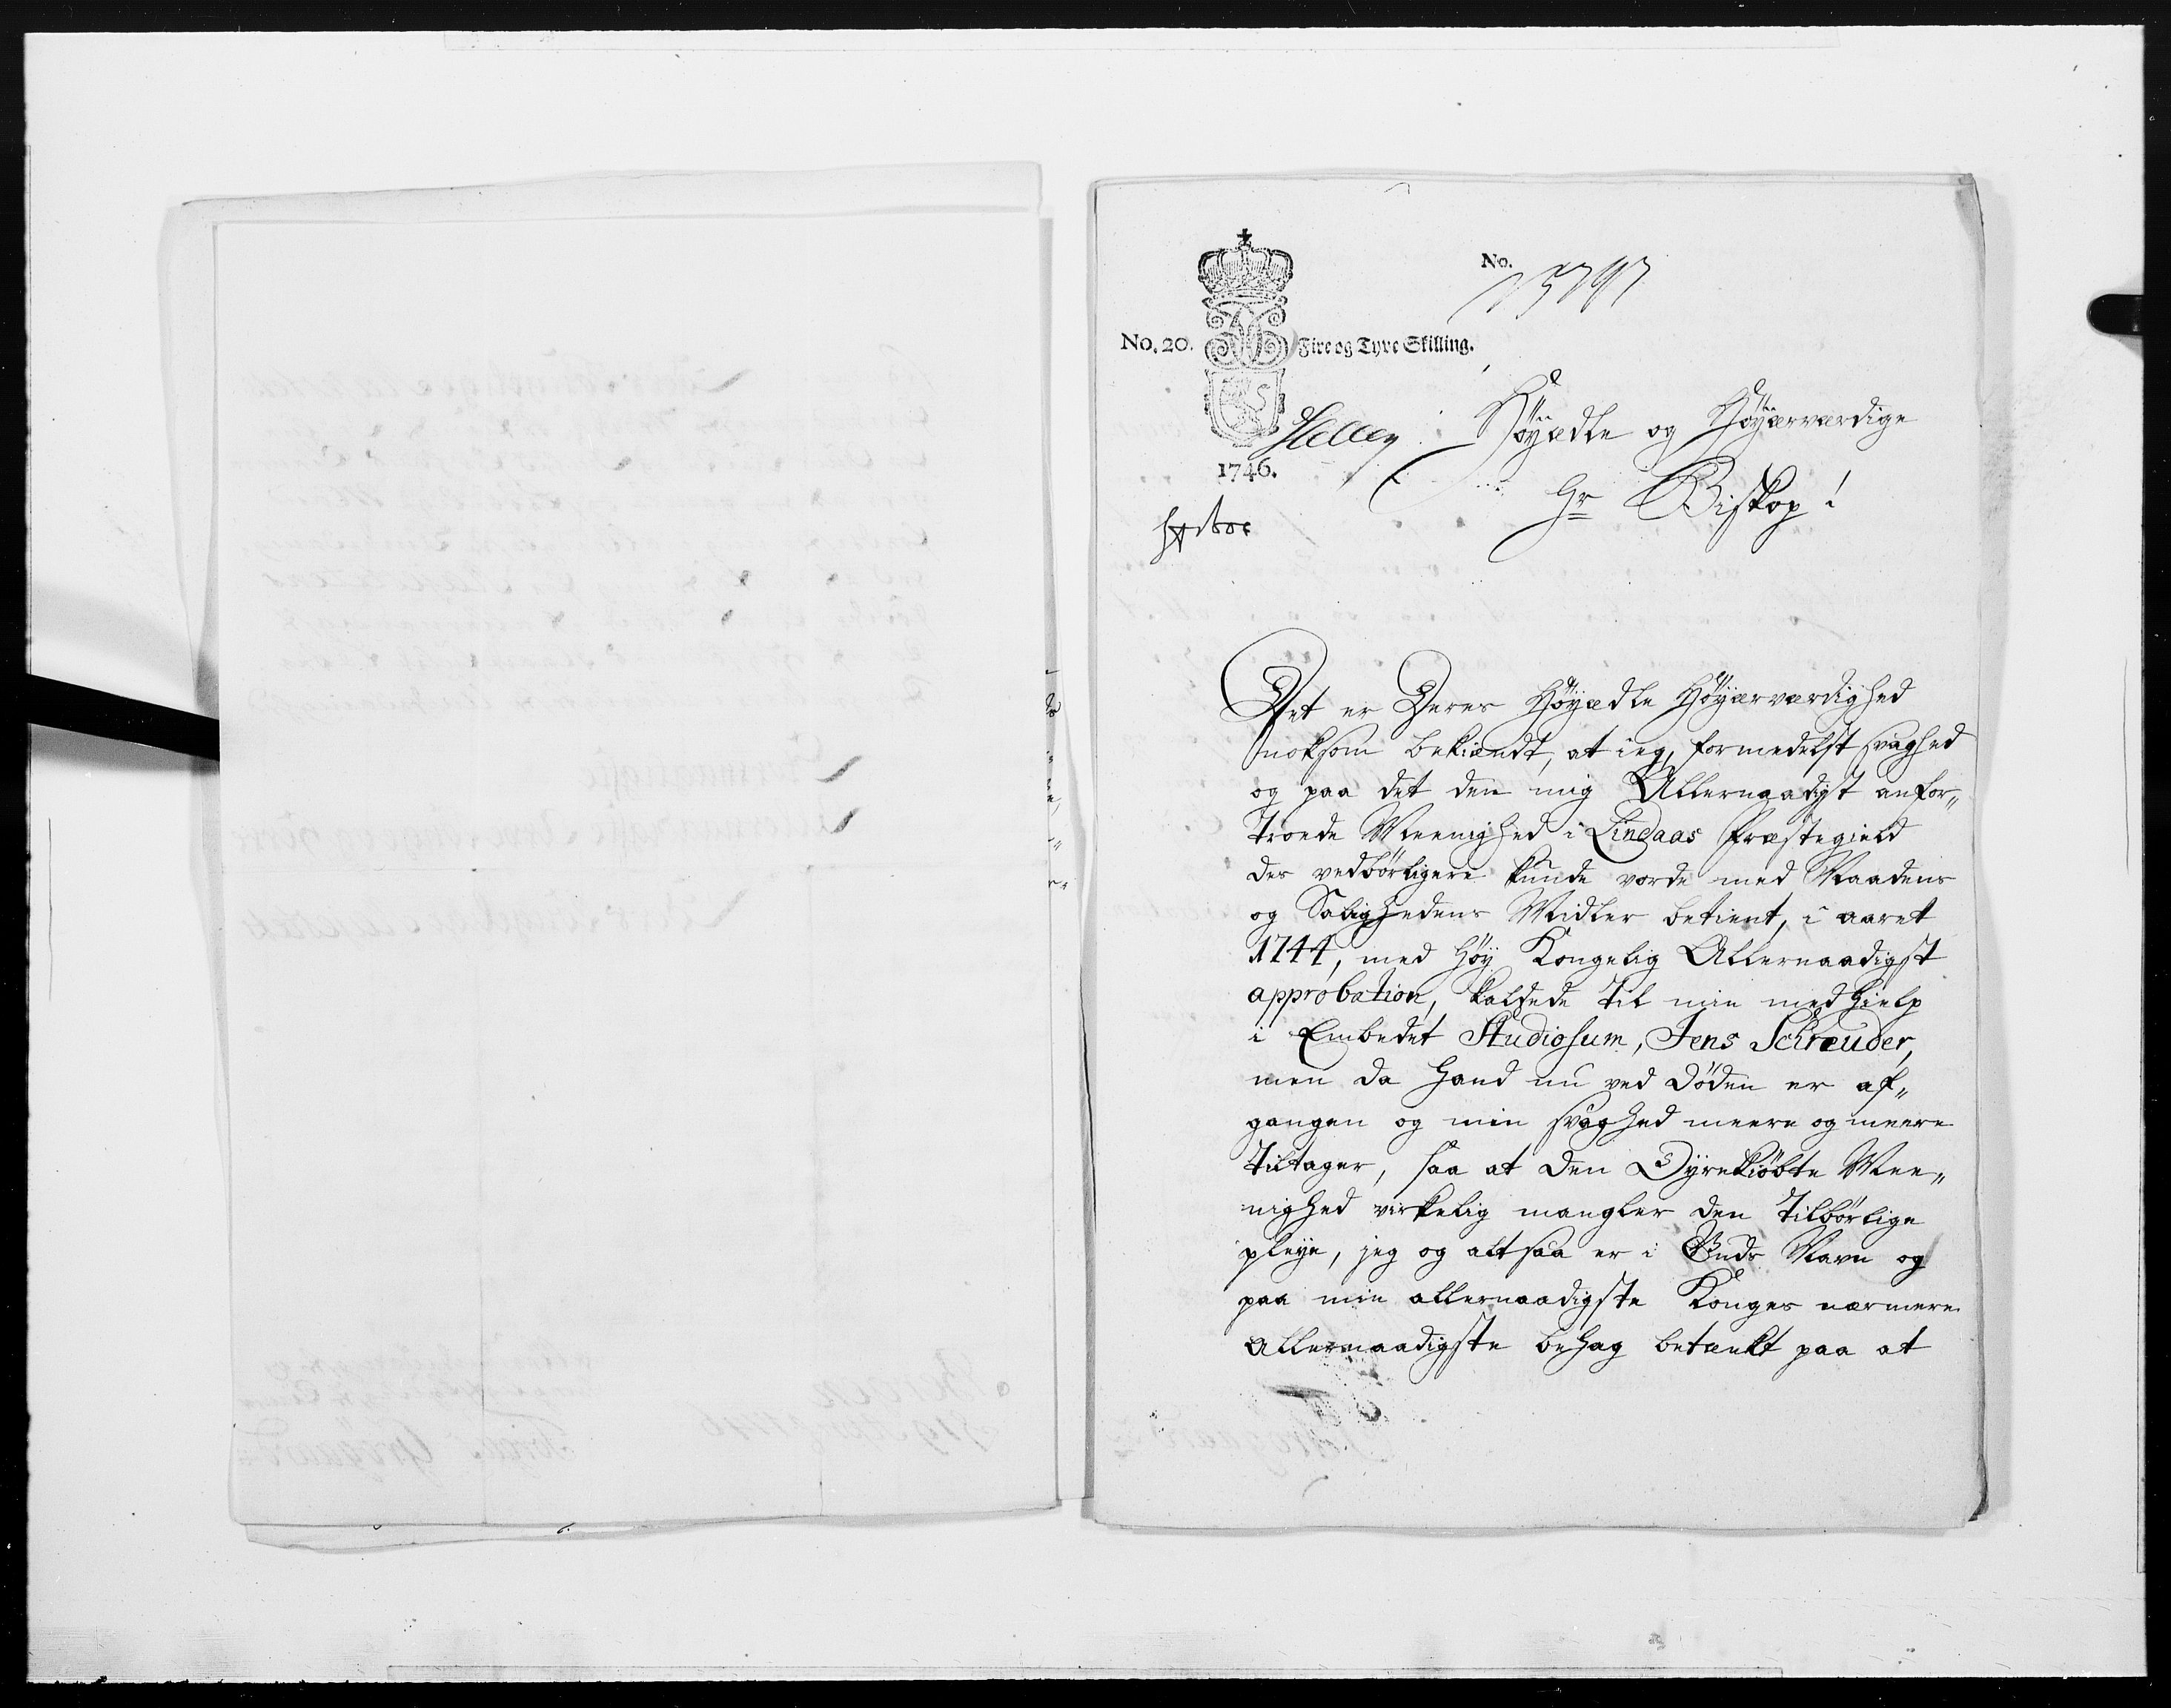 No.
No. 20.
Fire og Tyve Skilling.
1746.
Høyædle og Høyærværdige
Hr Biskop!
Det er Deres Høyædle Høyærværdighed
noksom bekiendt, at ieg, formedelst svaghed
og paa det den mig Allernaadigst anfor„
troede Meenighed i Lindaas Præstegield
des vedbørligere kunde vorde med Naadens
og Salighedens Midler betient, i aaret
1744, med høy Kongelig Allernaadigst
approbation, kaldede til min medhielp
i Embedet Studiosum, Jens Schreuder,
men da hand nu ved døden er af„
gangen og min svaghed meere og meere
tiltager, saa at den Dyrekiøbte Mee„
nighed virkelig mangler den tilbørlige
pleye, jeg og altsaa er i Guds Navn og
paa min allernaadigste Konges nærmere
allernaadigste behag betænkt paa at